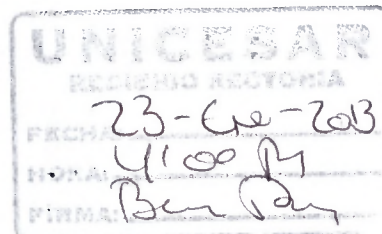 UNICESAR
RECIBIDO RECTORIA
FECHA: 23-Ene-2013
HORA: 4:00 PM
FIRMA: